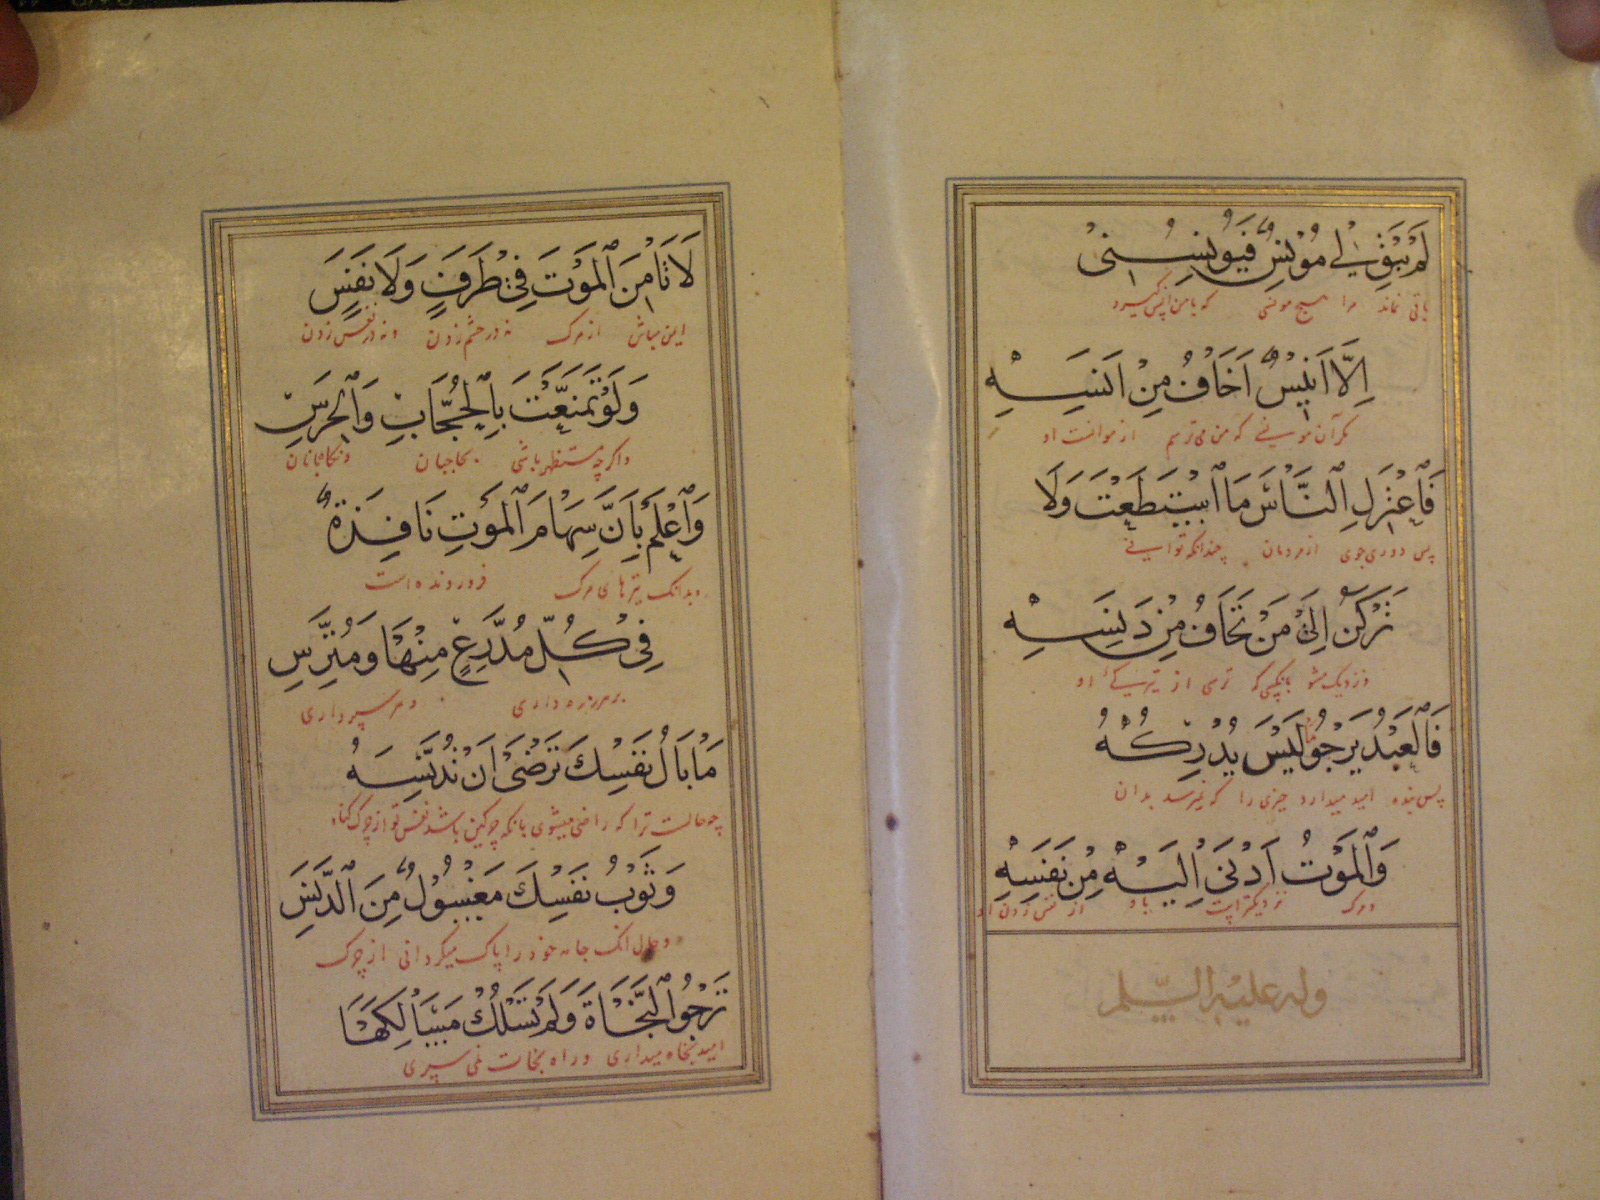 لَمْ يَبْقَ لِي مُونِسٌ فَيُونِسُنِي
باقی نماند مرا هیچ مونسی که با من انس گیرد
اِلّا اَنِيسٌ اَخَافُ مِنْ اَنَسِهِ
مگر آن مونسی که من می ترسم از موانست او
فَاعْتَزِلِ النَّاسَ مَا اسْتَطَعْتَ وَلَا
پس دوری جوی از مردمان چندانکه توانی
تَرْكَنْ اِلَى مَنْ تَخَافُ مِنْ دَنَسِهِ
و نزدیک مشو بانکسی که ترسی از تیرگی او
فَالْعَبْدُ يَرْجُو لَيْسَ يُدْرِكُهُ
ما
پس بنده امید میدارد چیزی را که نمیرسد بدان
وَالْمَوْتُ اَدْنَى اِلَيْهِ مِنْ نَفَسِهِ
و مرگ نزدیکتر است باو از نفس زدن او
وله عليه السّلم
لَا تَامَنِ الْمَوْتَ فِي طَرَفٍ وَلَا نَفَسٍ
ایمن مباش از مرگ نه در چشم زدن و نه در نفس زدن
وَلَوْ تَمَنَّعْتَ بِالْحُجَّابِ وَالْحَرَسِ
و اگرچه مستظهر باشی بحاجبان و نگاهبانان
وَاعْلَمْ بِاَنَّ سِهَامَ الْمَوْتِ نَافِذَةٌ
و بدانک تیرهای مرگ فرورونده است
فِي كُلِّ مُدَّرِعٍ مِنْهَا وَمُتَّرِسِ
بر هر زره داری و هر سپرداری
مَا بَالُ نَفْسِكَ تَرْضَى اَنْ تُدَنِّسَهُ
چه حالست ترا که راضی میشوی بانکه چرکین باشد نفس تو از چرک گناه
وَثَوْبُ نَفْسِكَ مَغْسُولٌ مِنَ الدَّنَسِ
و حال انک جامه خود را پاک میگردانی از چرک
تَرْجُو النَّجَاةَ وَلَمْ تَسْلُكْ مَسَالِكَهَا
امید نجاه میداری و راه نجات نمی سپری